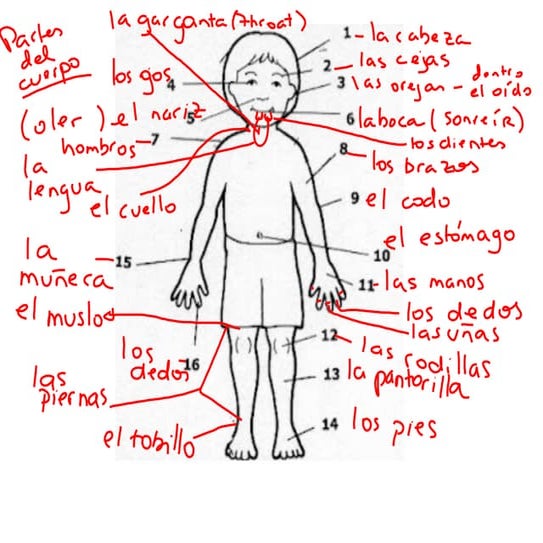 Partes
del
cuerpo
la garganta (throat)
1 - la cabeza
2 - las cejas
3 las orejas - dentro
el oído
los ojos 4
5
(oler) el nariz
6 la boca (sonreír)
los dientes
hombros - 7
8 - los brazos
la
lengua
el cuello
9 el codo
10
el estómago
11 - las manos
la
muñeca
15
el muslo
los dedos
las uñas
los
dedos
16
12 las rodillas
13 la pantorilla
las
piernas
14 los pies
el tobillo